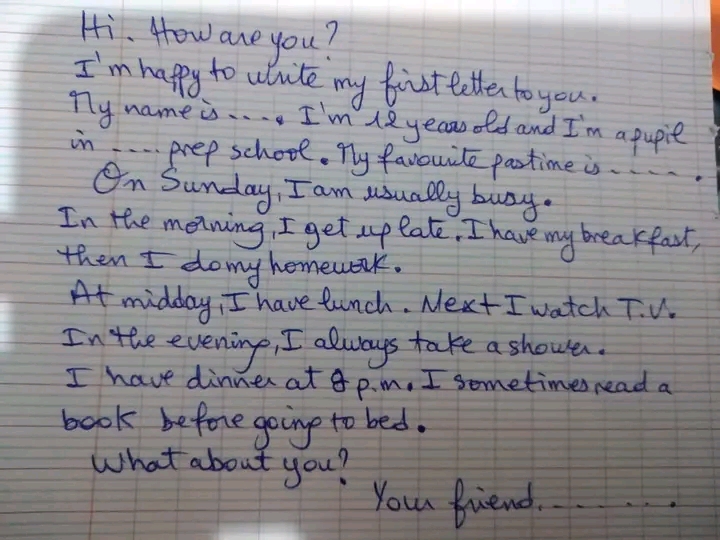 Hi. How are you?
I'm happy to write my first letter to you.
My name is ..... I'm 12 years old and I'm a pupil
in ..... prep school. My favourite pastime is ......
On Sunday, I am usually busy.
In the morning, I get up late. I have my breakfast,
then I do my homework.
At midday, I have lunch. Next I watch T.V.
In the evening, I always take a shower.
I have dinner at 8 p.m. I sometimes read a
book before going to bed.
What about you?
Your friend.........